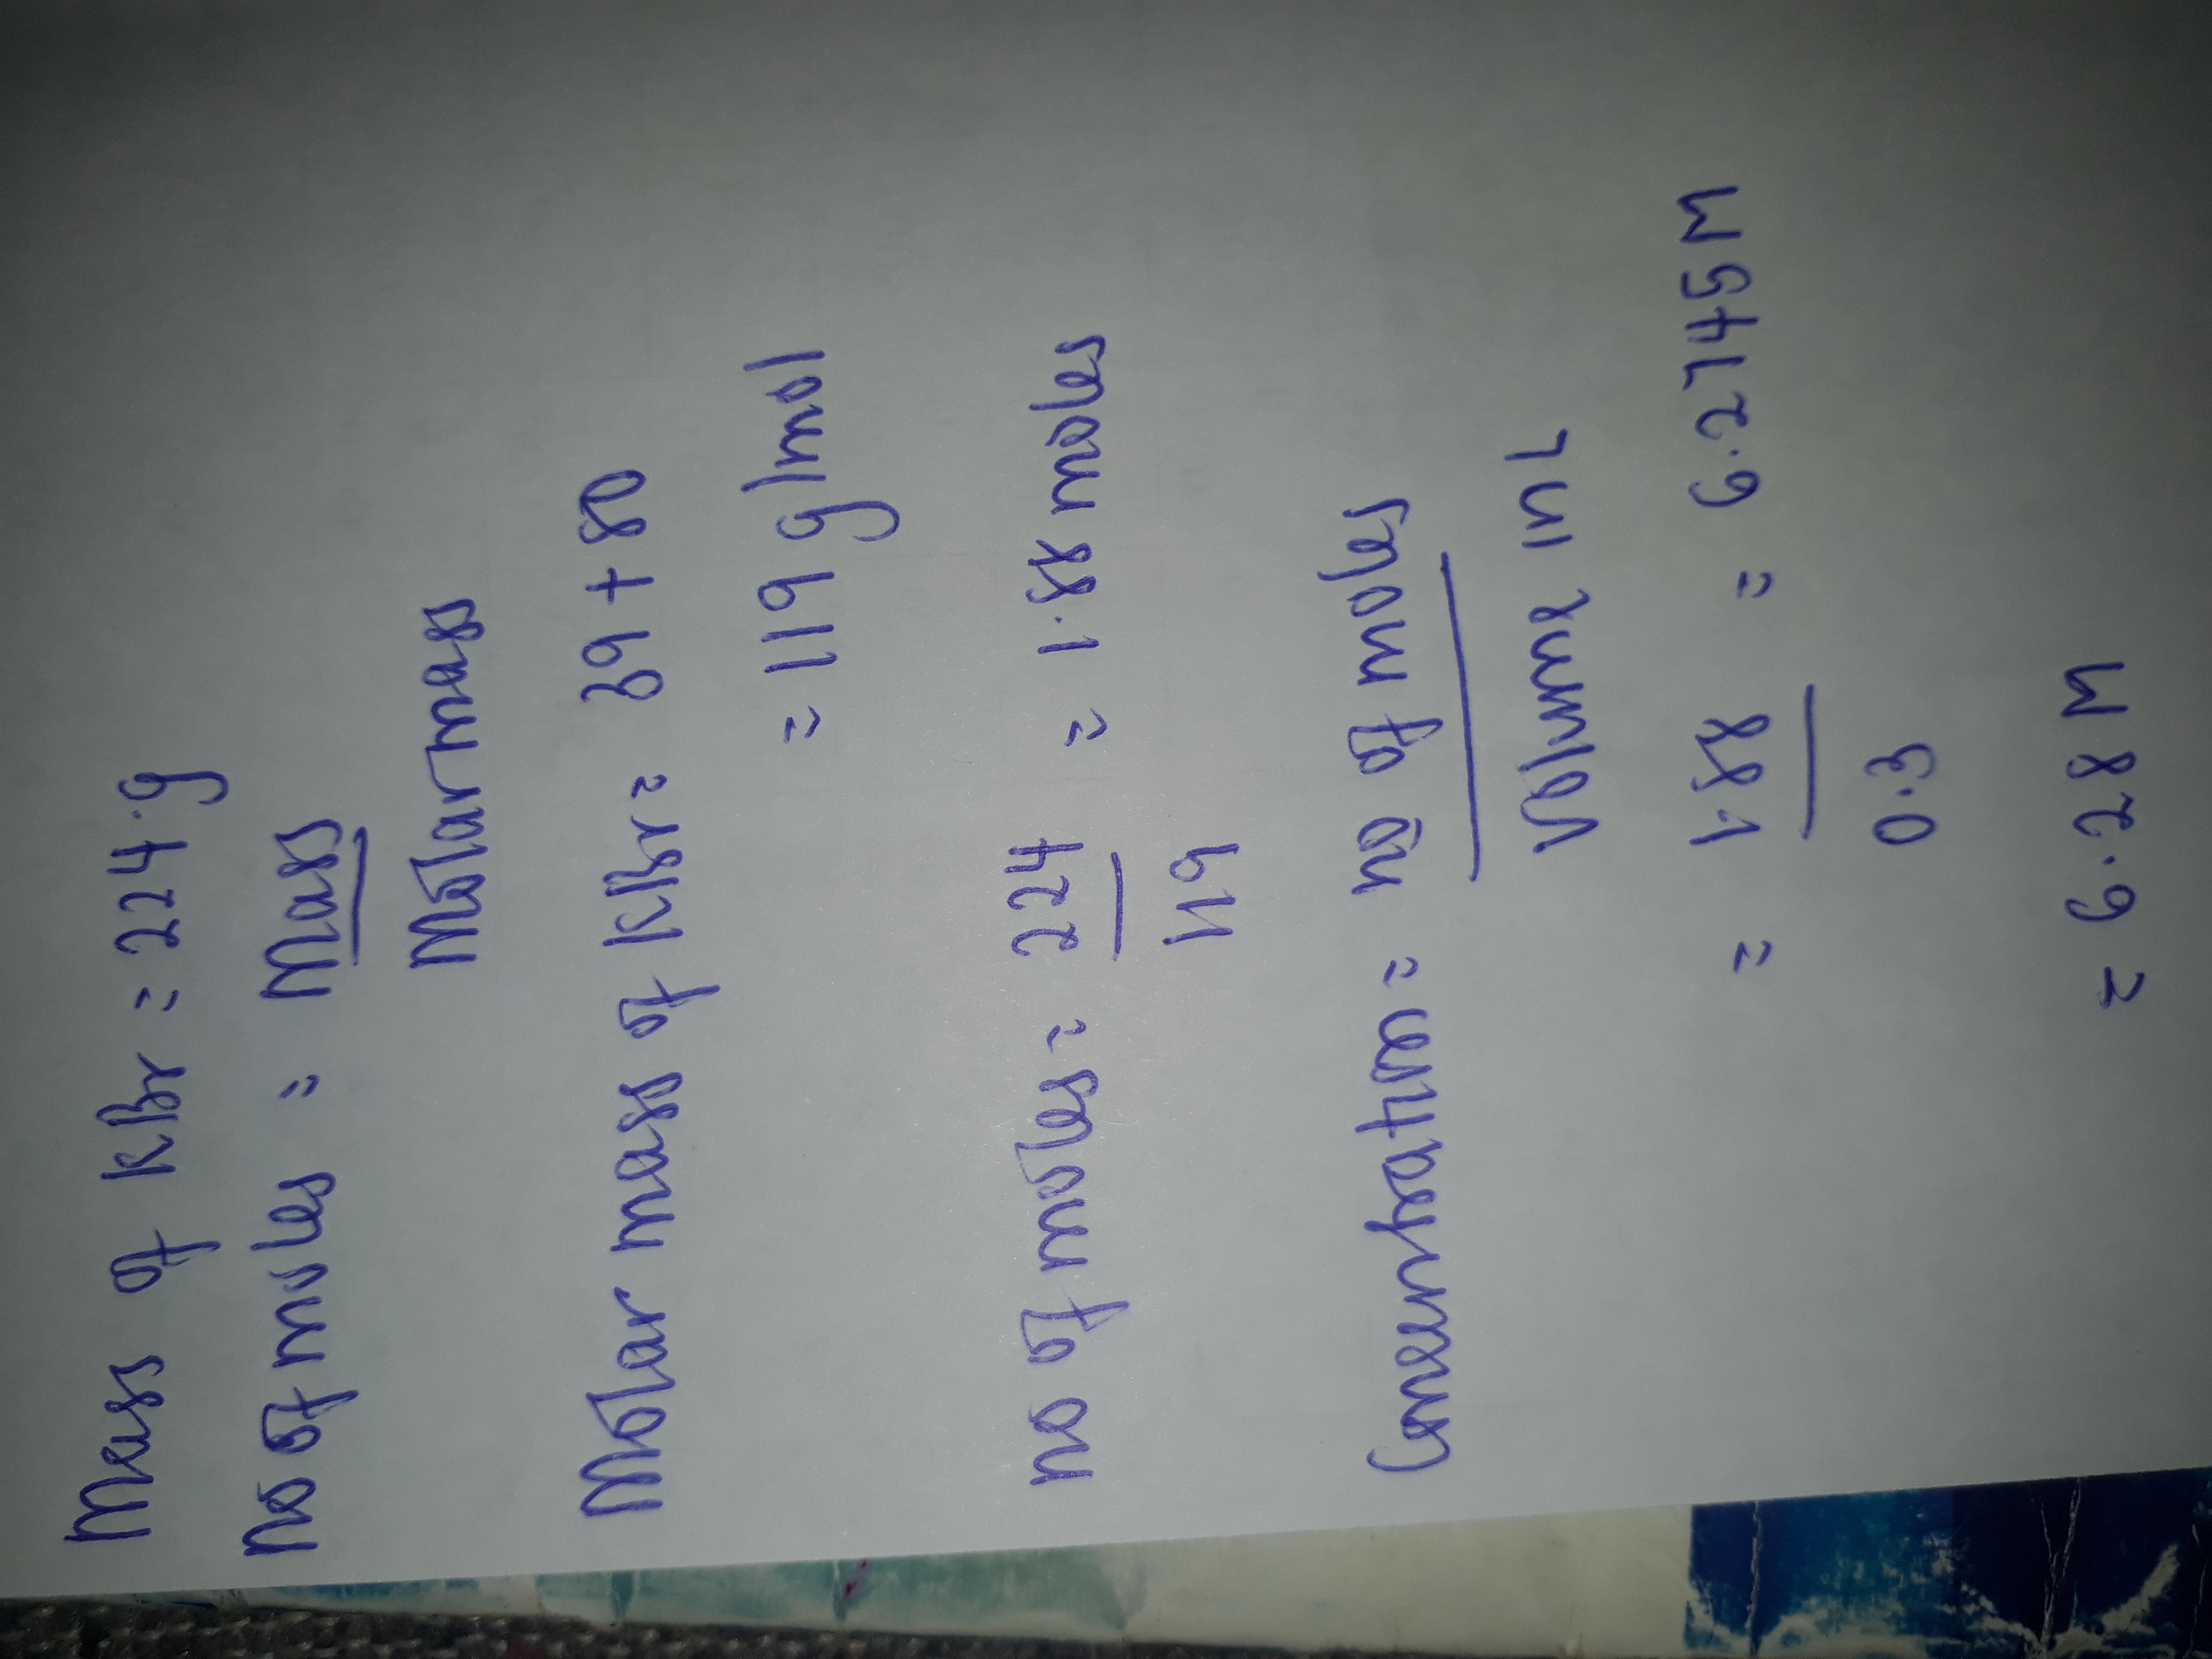 Mass of KBr = 224.g
no of moles = Mass
Molar mass
Molar mass of KBr = 39 + 80
= 119 g/mol
no of moles = 224 = 1.88 moles
119
Concentration = no of moles
Volume in L
= 1.88 = 6.2745 M
0.3
= 6.28 M